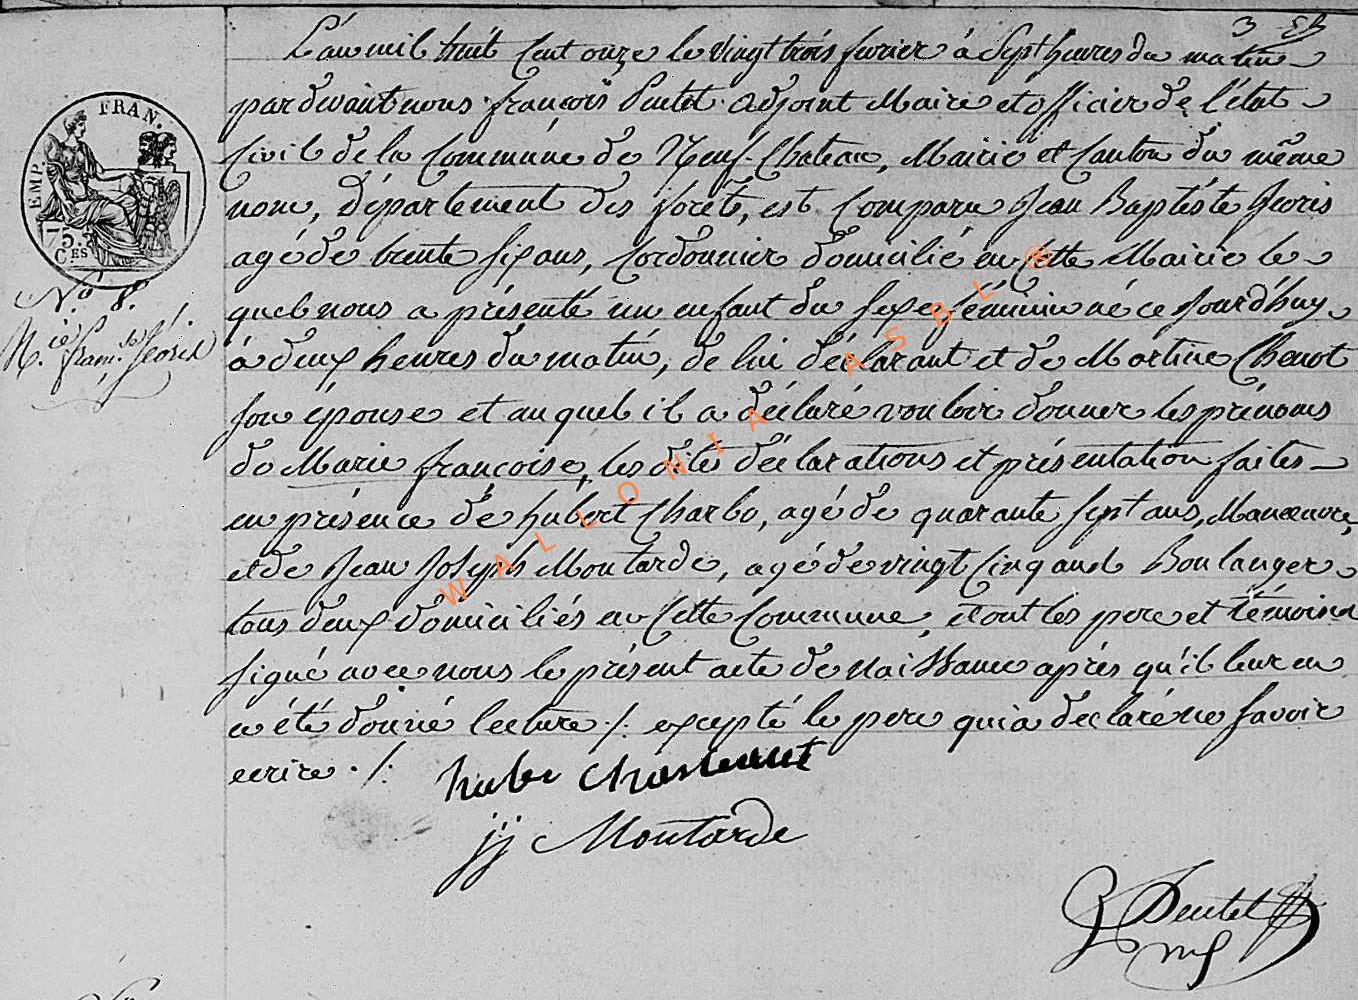 3
L'an mil huit Cent onze le vingt trois fevrier à Sept heures du matin
pardevant nous françois Pentel adjoint Maire et officier de l'état
Civil de la Commune de Neuf-Chateau, Mairie et Canton du même
nom, Département des forêts, est Comparu Jean Baptiste Georis
agé de trente six ans, Cordonnier domicilié en cette Mairie le
quel nous a présenté un enfant du sexe féminin né ce Jourd'huy
à deux heures du matin, de lui déclarant et de Martine Chenot
son épouse et au quel il a déclaré vouloir donner les prénoms
de Marie françoise, les dites déclarations et présentation faites
en présence de hubert Charbo, agé de quarante sept ans, Manœuvre,
et de Jean Joseph Moutarde, agé de vingt Cinq ans Boulanger
tous deux domiciliés en Cette Commune, et ont les pere et témoins
signé avec nous le présent acte de naissance après qu'il leur en
a été donné lecture ./. excepté le pere qui a declaré ne savoir
ecrire ./.
FRAN.
EMP.
75.
C.ES
N.o 8.
M.cie fran.se Géoris
hube
jj Moutarde
WALLONIA ASBL ®